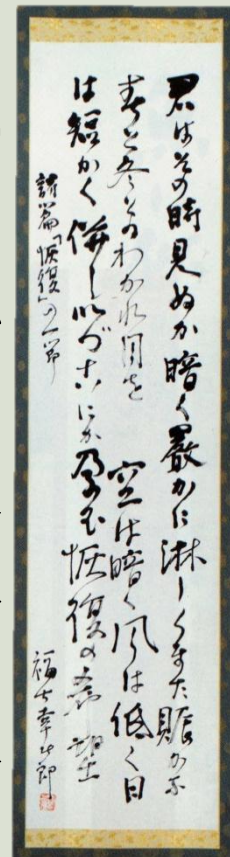 君はその時見ぬか暗く厳かに淋しくまた賑かな
春と冬とのわかれ目を 空は暗く風は低く日
は短かく併しいづこにか孕む恢復の希望
詩篇「恢復」の一節
福士幸次郎